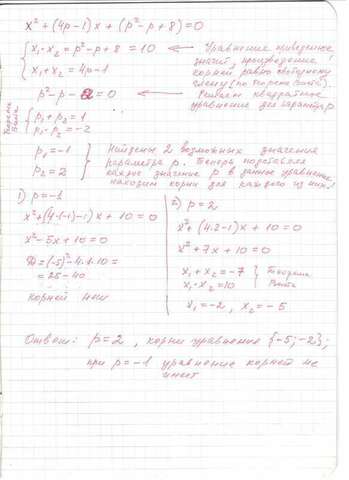 x² + (4p-1)x + (p²-p+8) = 0
x₁·x₂ = p²-p+8 = 10 ← Уравнение приведенное
значит, произведение
x₁+x₂ = 4p-1
корней равно свободному
члену (по теореме Виета)
p²-p-2 = 0 ← Решаем квадратное
уравнение для параметра
Теорема Виета
p₁+p₂ = 1
p₁·p₂ = -2
p₁ = -1
p₂ = 2
Найдены 2 возможных значения
параметра p. Теперь
каждое значение p в данное уравнение
находим корни для каждого из них!
1) p = -1
x²+(4·(-1)-1)x + 10 = 0
x²-5x+10 = 0
D = (-5)²-4·1·10 =
= 25-40
корней нет
2) p = 2
x²+(4·2-1)x+10=0
x²+7x+10=0
x₁+x₂ = -7
x₁·x₂ = 10
Теорема
Виета
x₁ = -2, x₂ = -5
Ответ: p=2, корни уравнения {-5; -2};
при p=-1 уравнение корней не
имеет